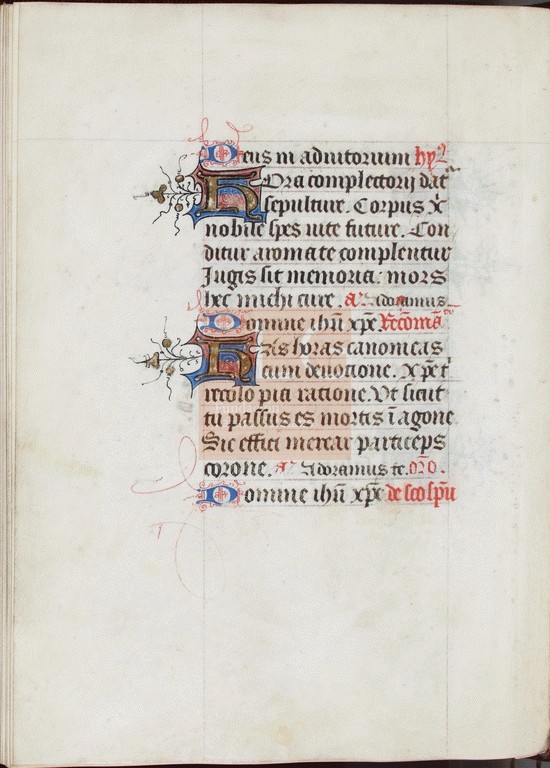 Deus in adiutorium hy᷑
HOra completorij dat̄
sepulture. Corpus x̄
nobile spes uite future. Con
ditur aromate complentur
Jugis sit memoria: mors
hec michi cure. a᷑. Adoramus
Domine ihū xp̄e Recōm̄
Has horas canonicas
cum deuotione. xp̄e t᷑
recolo pia ratione. Vt sicut
tu passus es mortis ī agone
Sic effici merear particeps
corone. a᷑ Adoramus te. oro.
Domine ihū xp̄e de sc̄o sp̄u